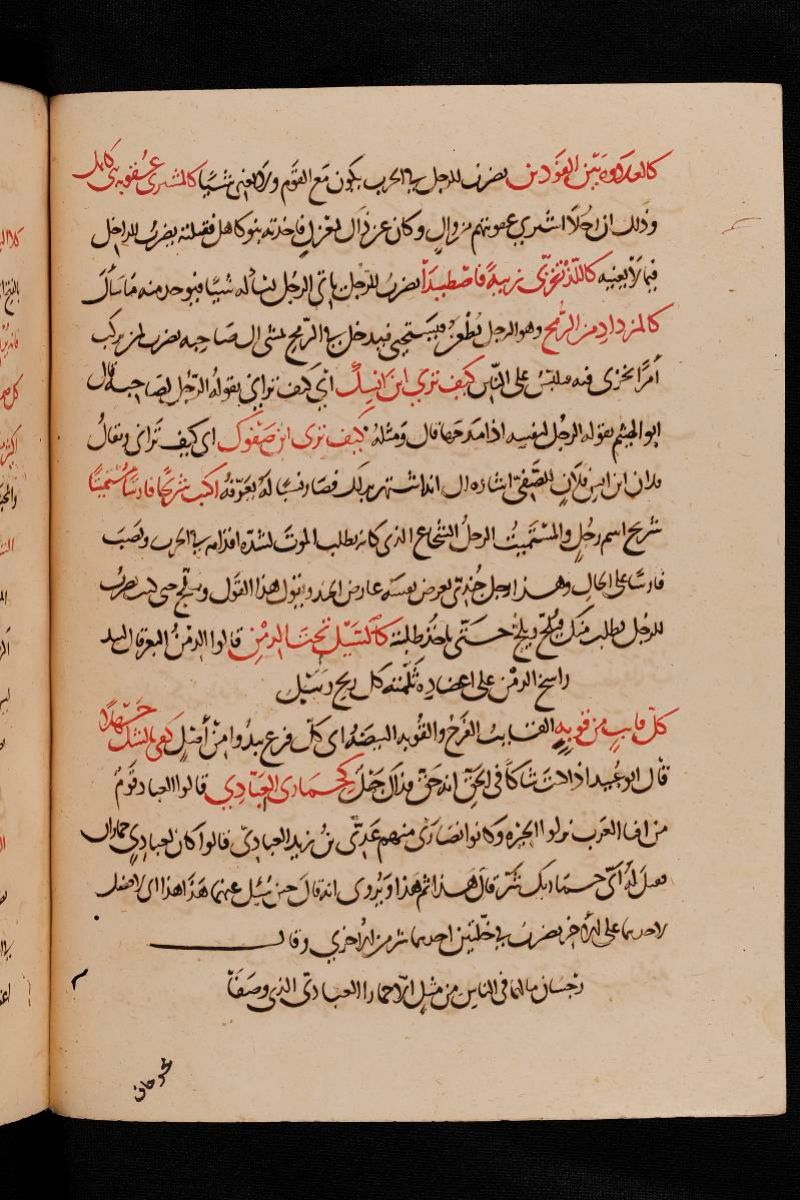 كالعلاوة بين الفودين يضرب للرجل في الحرب يكون مع القوم ولا يغني شيئا كالمشتري عقوبة بني كاهل
وذلك ان رجلا اشتري عقوبتهم من وال وكان عن ذلك بمعزل فاخذته بنو كاهل فقتلته يضرب للداخل
فيما لا يعنيه كاللذ تزبى زبية فاصطيدا يضرب للرجل ياتي الرجل يساله شيئا فيوخذ منه ما سأل
كالمزداد من الرمح وهو الرجل يُطعن فيستحيي فيدخل في الرمح يمشي الى صاحبه يضرب لمن يركب
أمرا يخزى فيه فيلبس على الناس كيف تري ابن انسك اي كيف تراني يقوله الرجل لصاحبه قال
ابو الهيثم يقوله الرجل لنفسه اذا مدحها قال ومثله كيف ترى ابن صفوك اي كيف تراني ويقال
فلان ابن انس فلان للصفي اشارة الى انه اشتهر بذلك فصار نسبا له يعرف به اكتب شريحا فارسا مستميتا
شريح اسم رجل والمستميت الرجل الشجاع الذي كانه يطلب الموت لشدة اقدامه في الحرب ونصب
فارسا على الحال وهذا رجل جُندي يعرض نفسه على عارض الجند ويقول هذا القول ويلح حتى كتب يضرب
للرجل يطلب منك فيلح ويلح حتى ياخذ طلبته كالسيل تحت الدمن قالوا الدمن البعر قال لبيد
راسخ الدمن على اعضاده ثلمته كل ريح وسبل
كل قايب من قوبه القايب الفرخ والقوبه البيضه اي كل فرع يبدو من أصل كفى بالشك جهلا
قال ابو عبيد اذا كنت شاكا في الحق انه حق فذلك جهل كحماري العبادي قالوا العباد قوم
من افناء العرب نزلوا الحيره وكانوا نصارى منهم عدي بن زيد العبادي قالوا كان لعبادي حماران
فقيل له أي حماريك شر قال هذا ثم هذا ويُروى انه قال حين سئل عنهما هذا هذا اي لا فضل
لاحدهما على الاخر يضرب في خلتين احدهما شر من الاخري وقال
رجسان ما لهما في الناس من مثل الا حمارا العبادي الذي وصفا